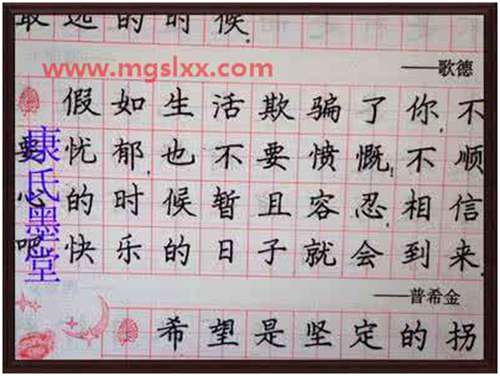 最远的时候.
www.mgslxx.com
——歌德
假如生活欺骗了你,不
要忧郁,也不要愤慨,不顺
心的时候暂且容忍,相信
吧,快乐的日子就会到来.
——普希金
希望是坚定的拐
康氏墨堂